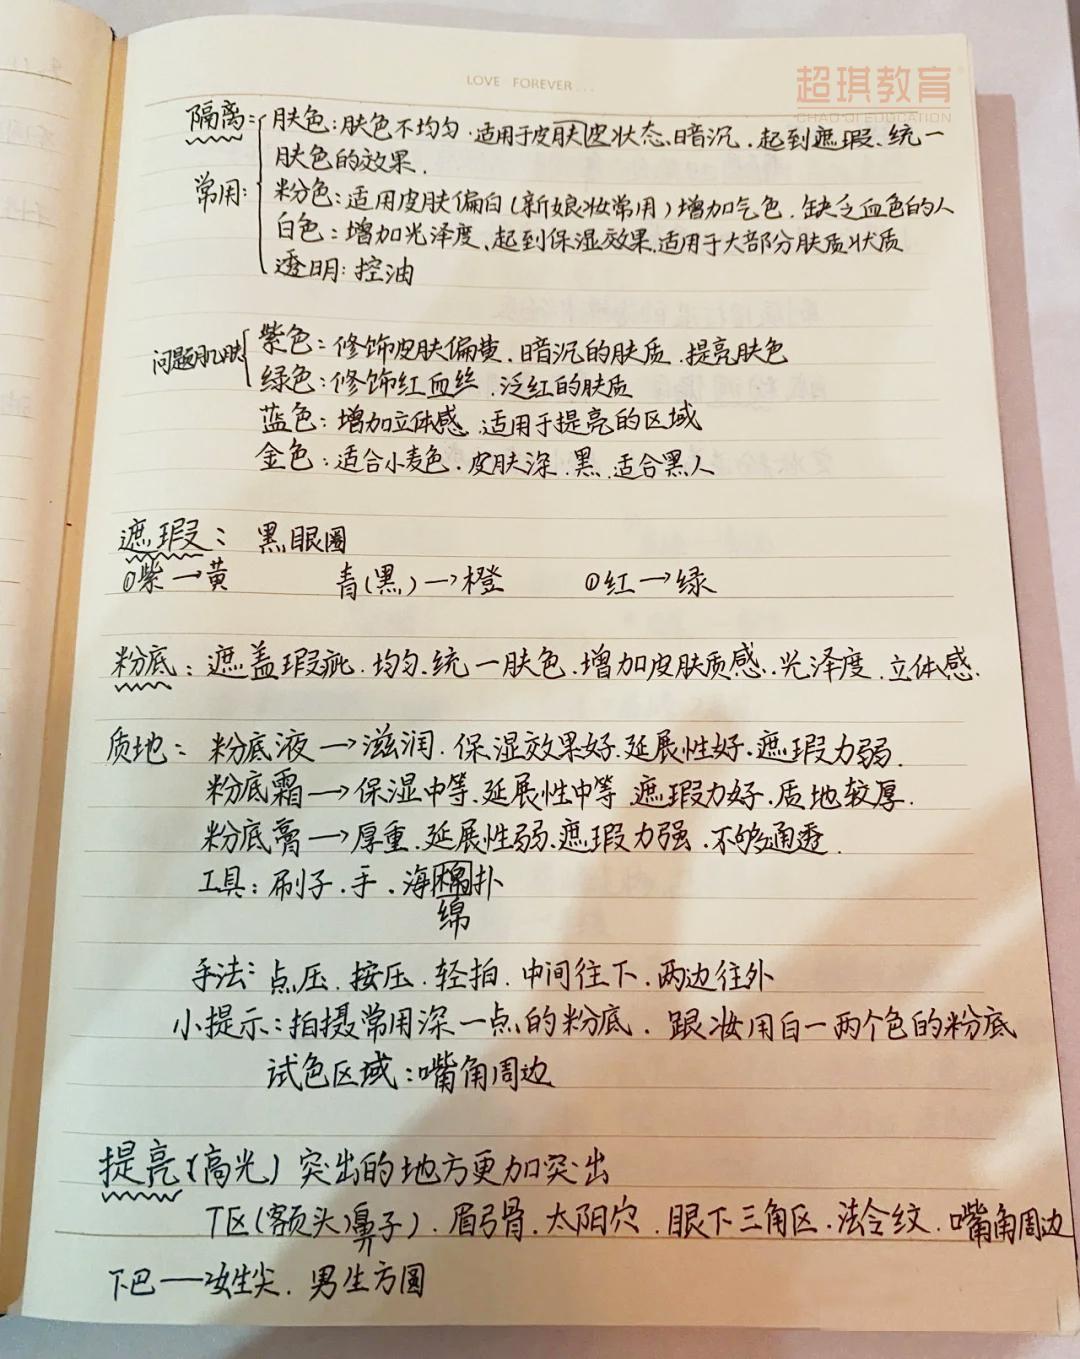 LOVE FOREVER...
超琪教育
CHAO QI EDUCATION
隔离:肤色:肤色不均匀.适用于皮肤状态、暗沉.起到遮瑕、统一
肤色的效果.
常用:粉色:适用皮肤偏白(新娘妆常用)增加气色.缺乏血色的人
白色:增加光泽度、起到保湿效果.适用于大部分肤质状质
透明:控油
问题肌肤 紫色:修饰皮肤偏黄.暗沉的肤质.提亮肤色
绿色:修饰红血丝.泛红的肤质
蓝色:增加立体感.适用于提亮的区域
金色:适合小麦色.皮肤深.黑.适合黑人
遮瑕: 黑眼圈
①紫→黄 青(黑)→橙 ①红→绿
粉底:遮盖瑕疵.均匀.统一肤色.增加皮肤质感.光泽度.立体感.
质地:粉底液→滋润.保湿效果好.延展性好.遮瑕力弱.
粉底霜→保湿中等.延展性中等 遮瑕力好.质地较厚.
粉底膏→厚重.延展性弱.遮瑕力强.不够通透.
工具:刷子.手.海棉扑
绵
手法:点压.按压.轻拍.中间往下.两边往外
小提示:拍摄常用深一点的粉底.跟妆用白一两个色的粉底
试色区域:嘴角周边
提亮:(高光) 突出的地方更加突出
T区(额头)鼻子).眉弓骨.太阳穴.眼下三角区.法令纹.嘴角周边
下巴——女生尖.男生方圆